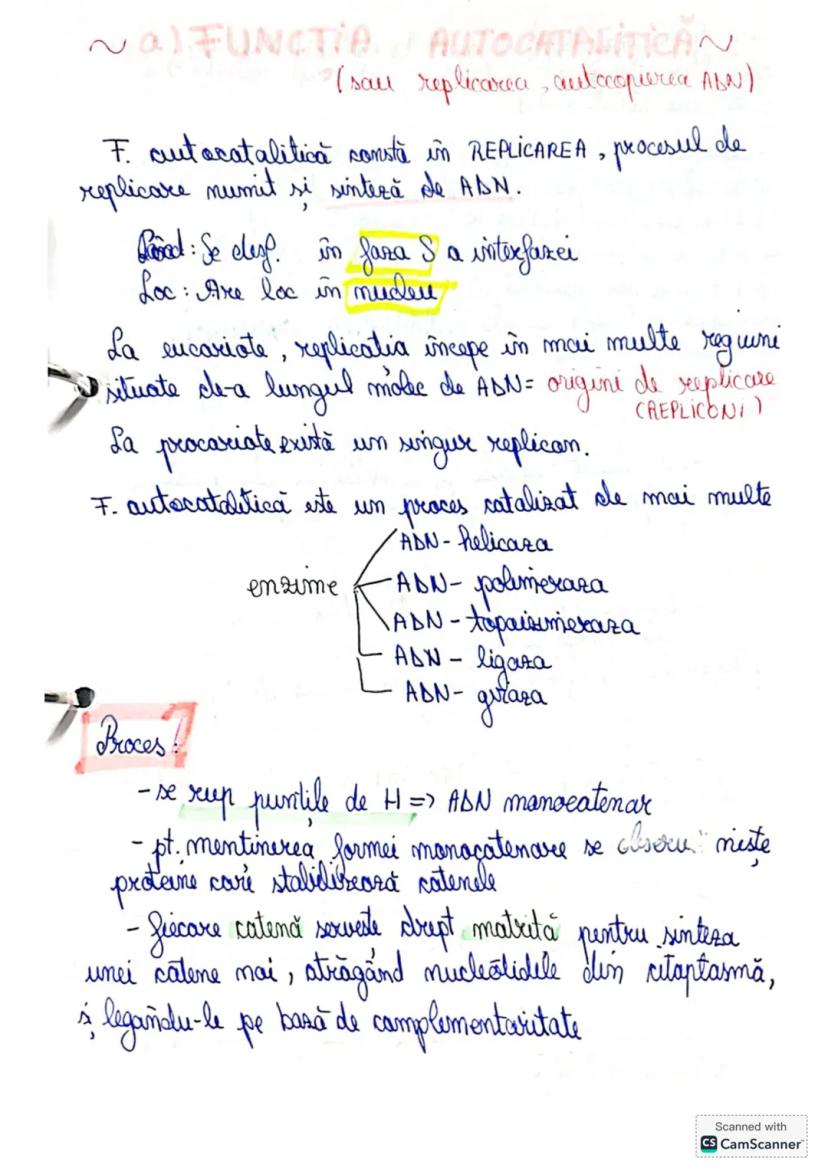 ~ a) FUNCȚIA AUTOCATALITICĂ ~
(sau replicarea, autocopierea ADN)
F. autocatalitică constă în REPLICAREA, procesul de
replicare numit și sinteză de ADN.
Când: Se desf. în faza S a interfazei
Loc: Are loc în nucleu
La eucariote, replicația începe în mai multe regiuni
situate de-a lungul molec de ADN = origini de replicare
(REPLICONI)
La procariote există un singur replicon.
F. autocatalitică este un proces catalizat de mai multe
enzime
ADN - helicaza
ADN - polimeraza
ADN - topoizomeraza
ADN - ligaza
ADN - giraza
Proces:
- se rup punțile de H => ADN monocatenar
- pt. menținerea formei monocatenare se niște
proteine care stabilizează catenele
- fiecare catenă servește drept matriță pentru sinteza
unei catene noi, atrăgând nucleotidele din citoplasmă,
și legându-le pe bază de complementaritate
Scanned with
CS CamScanner